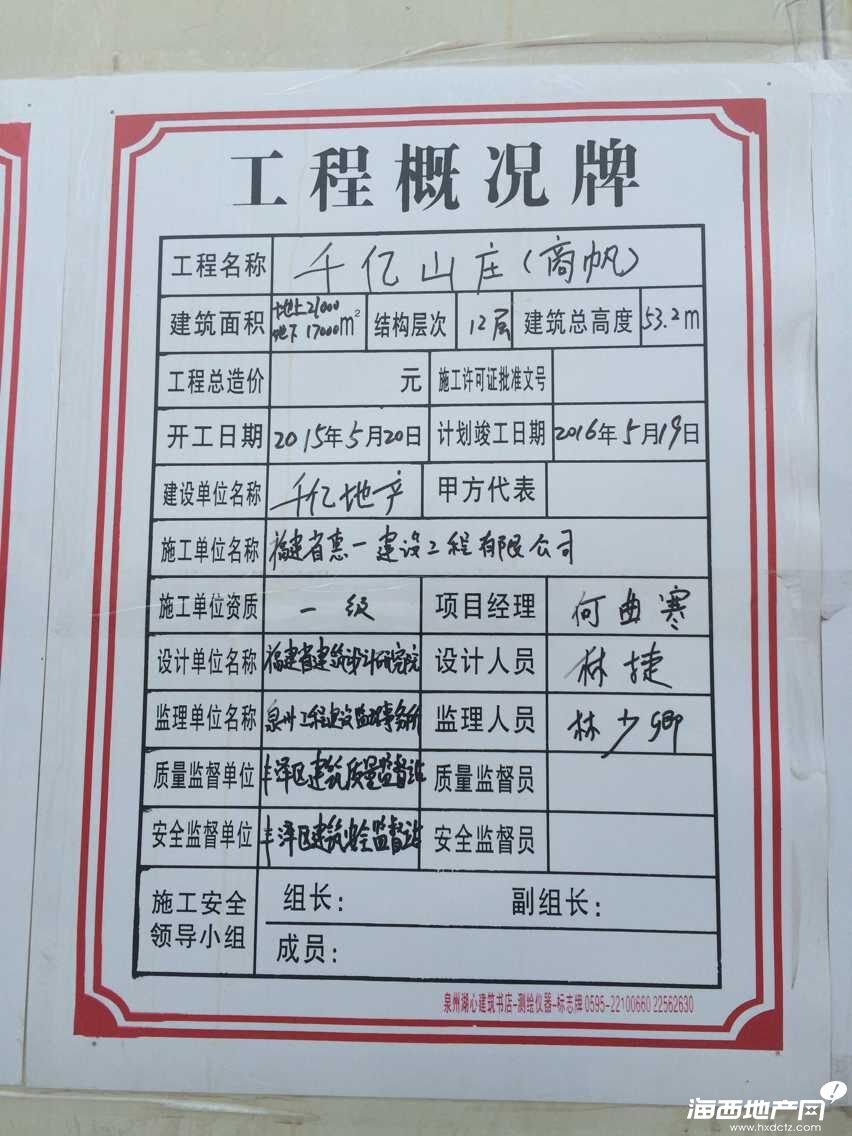 工程概况牌
工程名称 千亿山庄(商帆)
建筑面积 地上21000 地下17000m² 结构层次 12层 建筑总高度 53.2m
工程总造价 元 施工许可证批准文号
开工日期 2015年5月20日 计划竣工日期 2016年5月19日
建设单位名称 千亿地产 甲方代表
施工单位名称 福建省惠一建设工程有限公司
施工单位资质 一级 项目经理 何曲寒
设计单位名称 福建省建筑设计研究院 设计人员 林捷
监理单位名称 泉州工程建设监理事务所 监理人员 林少卿
质量监督单位 丰泽区建筑质量监督站 质量监督员
安全监督单位 丰泽区建筑安全监督站 安全监督员
施工安全
领导小组
组长: 副组长:
成员:
泉州湖心建筑书店-测绘仪器-标志牌 0595-22100660 22562630
海西地产网
www.hxdctz.com